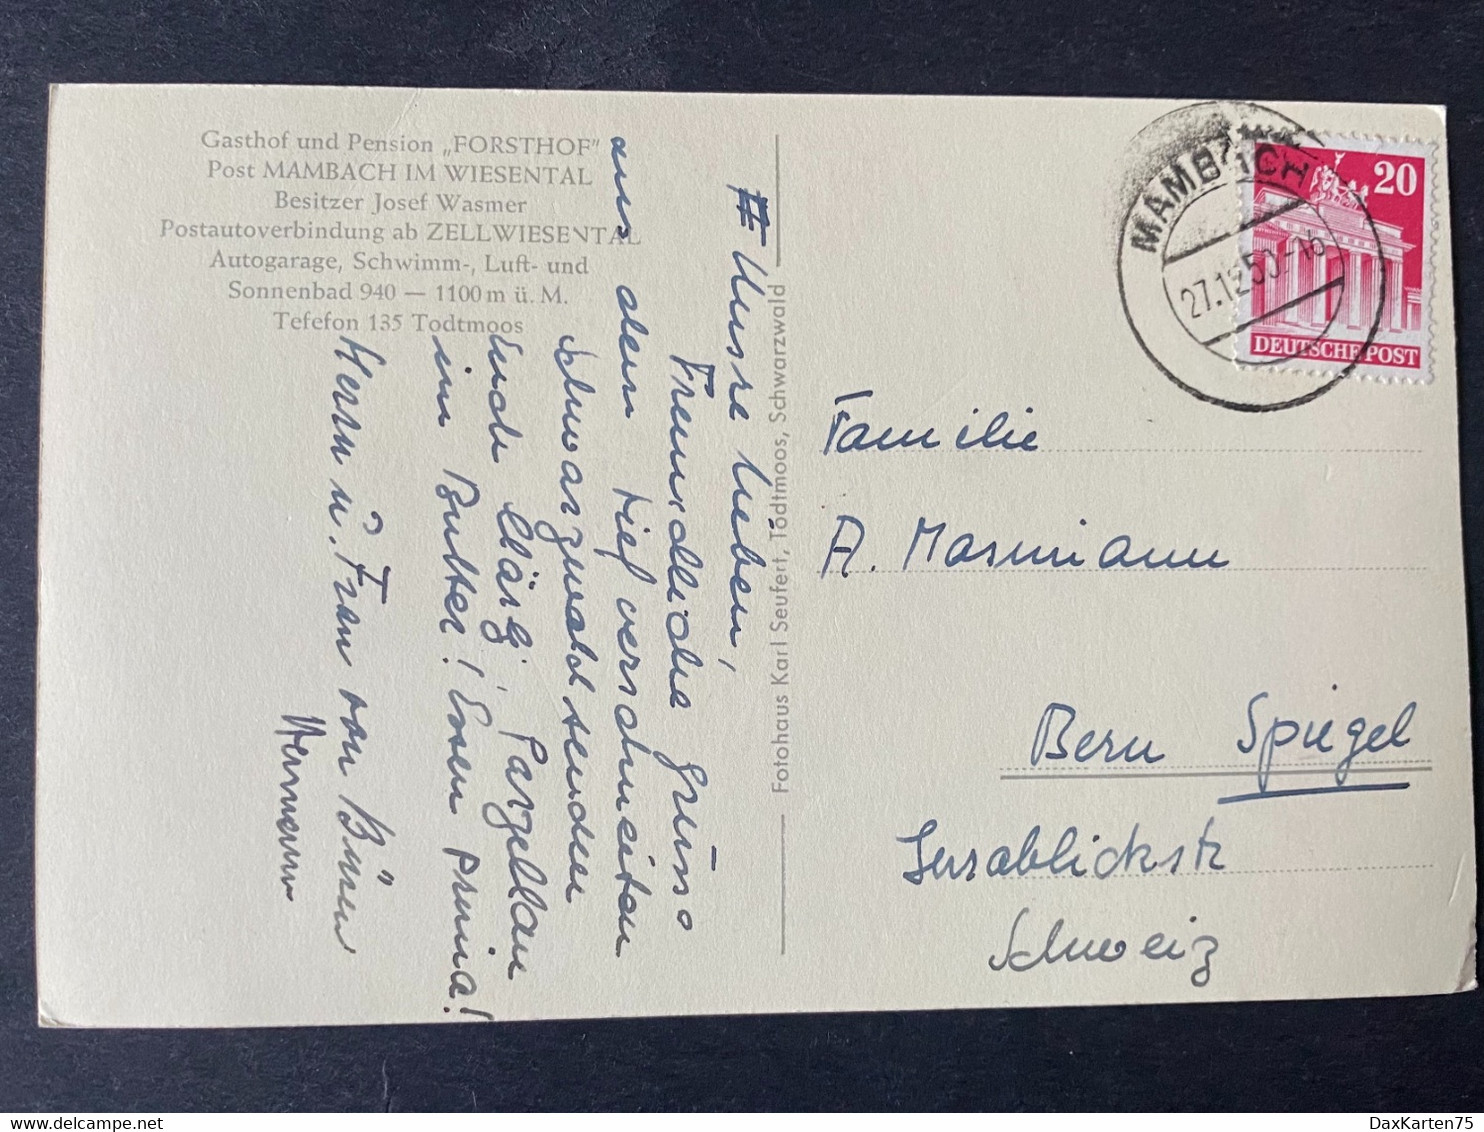 Gasthof und Pension „FORSTHOF"
Post MAMBACH IM WIESENTAL
Besitzer Josef Wasmer
Postautoverbindung ab ZELL WIESENTAL
Autogarage, Schwimm-, Luft- und
Sonnenbad 940 — 1100 m ü. M.
Tefefon 135 Todtmoos
Unsre lieben,
Freundliche Grüße
aus dem tief verschneiten
Schwarzwald senden
Euch
im Butter! Essen prima!
Herr u. Frau von Büren
Hermann
Fotohaus Karl Seufert, Todtmoos, Schwarzwald
MAMBACH
27.12.50.-16
20
DEUTSCHE POST
Familie
A. Mosimann
Bern Spiegel
Jurablickstr
Schweiz
DaxKarten75
delcampe.net